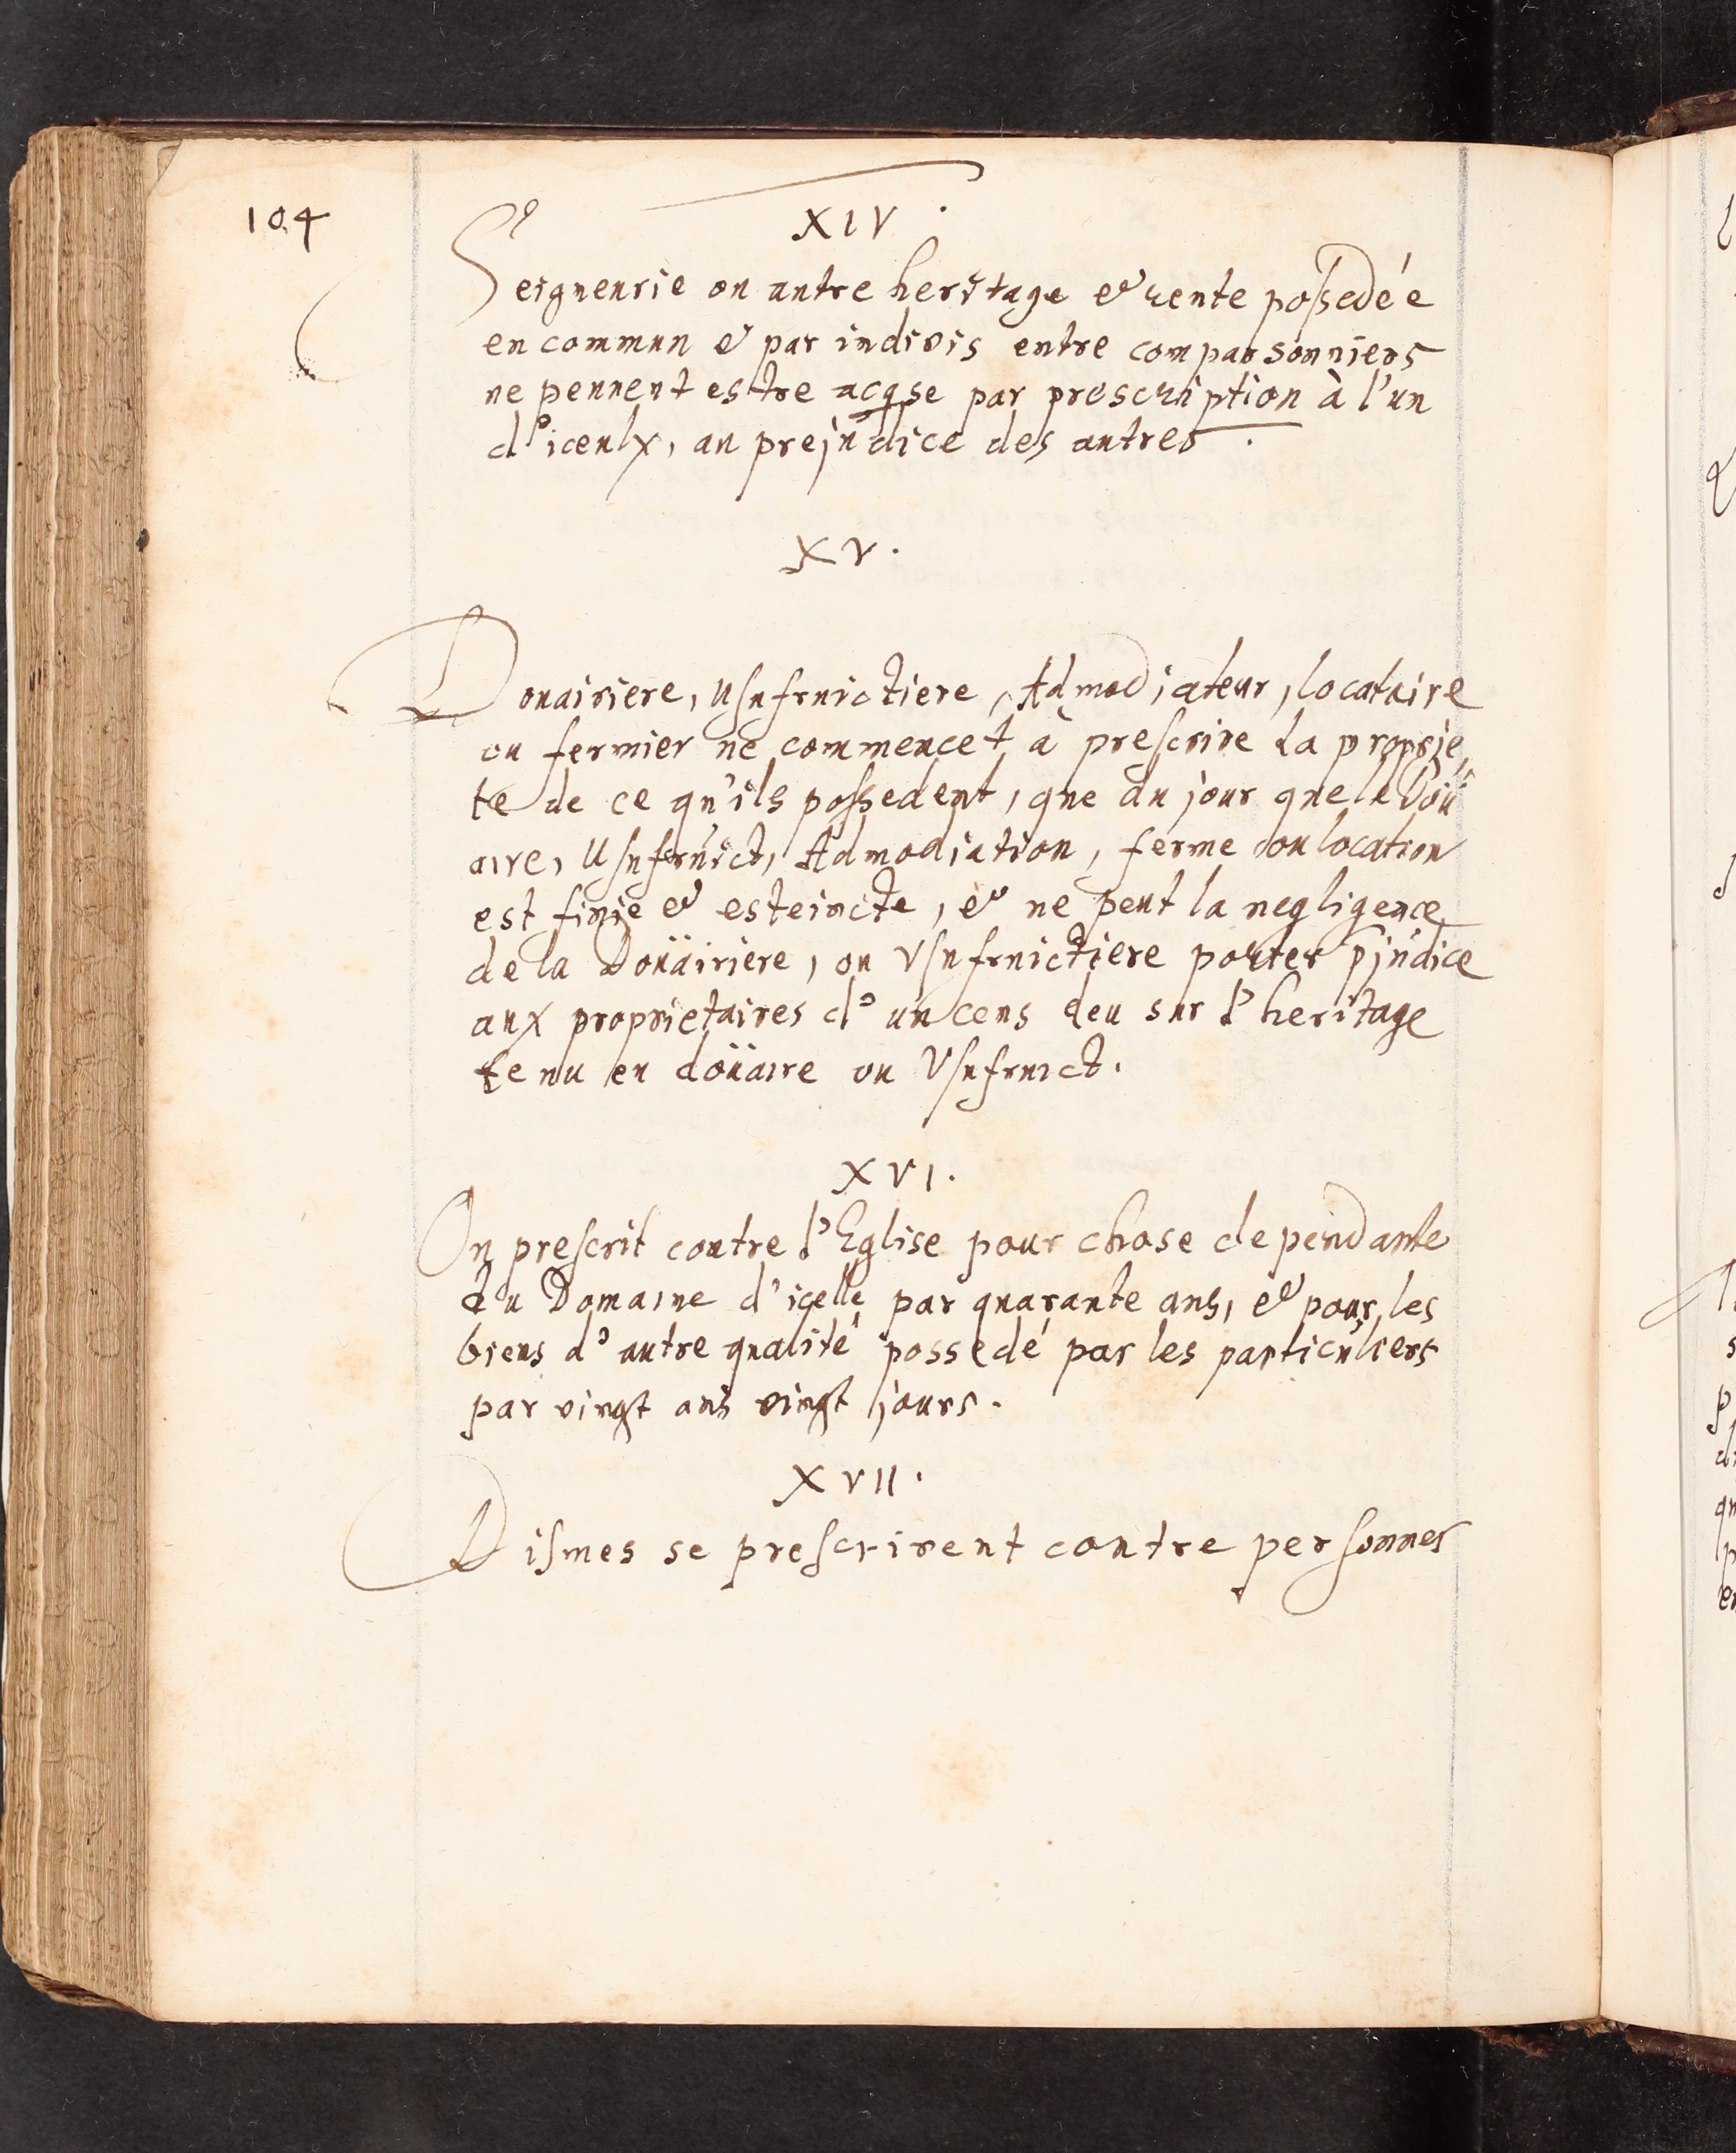 104
XIV.
Seigneurie ou autre heritage & rente possedée
en commun & par indivis entre comparsonniers
ne peuvent estre acqse par prescription à l'un
d'iceulx, au prejudice des autres.
XV.
Douairiere, Usufruictiere, Admodiateur, locataire
ou fermier ne commencet à prescrire la proprie,
te de ce qu'ils possedent, que du jour que le Doü
aire, Usufruict, Admodiation, ferme ou location
est finie & esteincte, & ne peut la negligence
de la Doüairiere, ou Vsufruictiere porter pjudice
aux proprietaires d'un cens deu sur l'heritage
tenu en doüaire ou Vsufruict.
XVI.
On prescrit contre l'Eglise pour chose dependante
du Domaine d'icelle par quarante ans, & pour les
biens d'autre qualité possedé par les particuliers
par vingt ans vingt jours.
XVII.
Dismes se prescrivent contre personnes